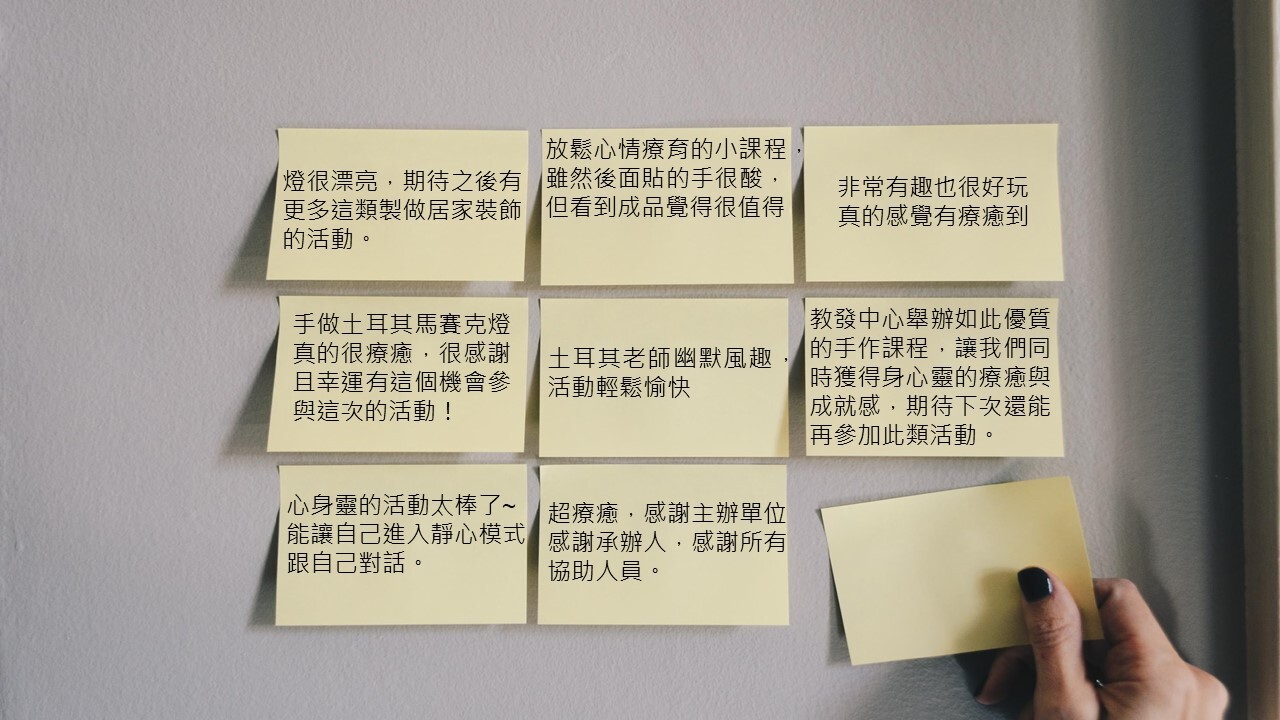 燈很漂亮，期待之後有
更多這類製做居家裝飾
的活動。
放鬆心情療育的小課程，
雖然後面貼的手很酸，
但看到成品覺得很值得
非常有趣也很好玩
真的感覺有療癒到
手做土耳其馬賽克燈
真的很療癒，很感謝
且幸運有這個機會參
與這次的活動！
土耳其老師幽默風趣，
活動輕鬆愉快
教發中心舉辦如此優質
的手作課程，讓我們同
時獲得身心靈的療癒與
成就感，期待下次還能
再參加此類活動。
心身靈的活動太棒了~
能讓自己進入靜心模式
跟自己對話。
超療癒，感謝主辦單位
感謝承辦人，感謝所有
協助人員。